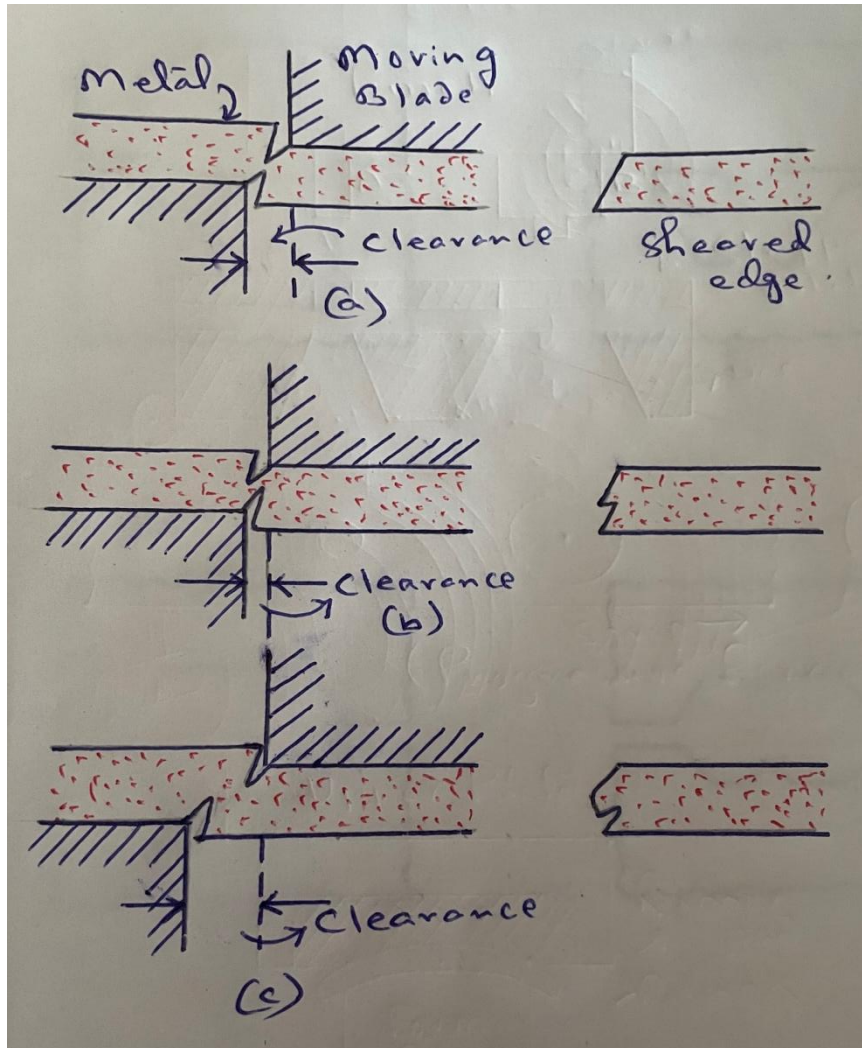 Metal
Moving
Blade
Clearance
(a)
Sheared
edge.
Clearance
(b)
Clearance
(c)